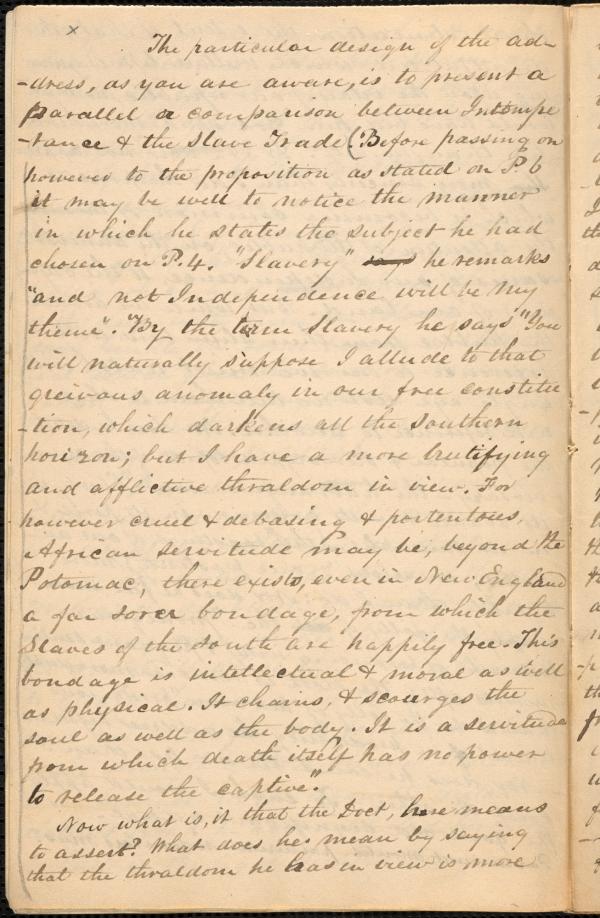 x
The particular design of the ad-
-dress, as you are aware, is to present a
parallel or comparison between Intempe
-rance & the Slave Trade (Before passing on
however to the proposition as stated on P. 6
it may be well to notice the manner
in which he states the subject he had
chosen on P. 4. "Slavery" says he remarks
"and not Independence will be my
theme". "By the term Slavery he says "You
will naturally suppose I allude to that
greivous anomaly in our free constitu
-tion, which darkens all the southern
horizon; but I have a more brutifying
and afflictive thraldom in view. For
however cruel & debasing & portentous,
African servitude may be, beyond the
Potomac, there exists, even in New England
a far sorer bondage, from which the
Slaves of the South are happily free. This
bondage is intellectual & moral as well
as physical. It chains, & scourges the
soul as well as the body. It is a servitude
from which death itself has no power
to release the captive".
Now what is, it that the Doct, here means
to assert? What does he mean by saying
that the thraldom he has in view is more